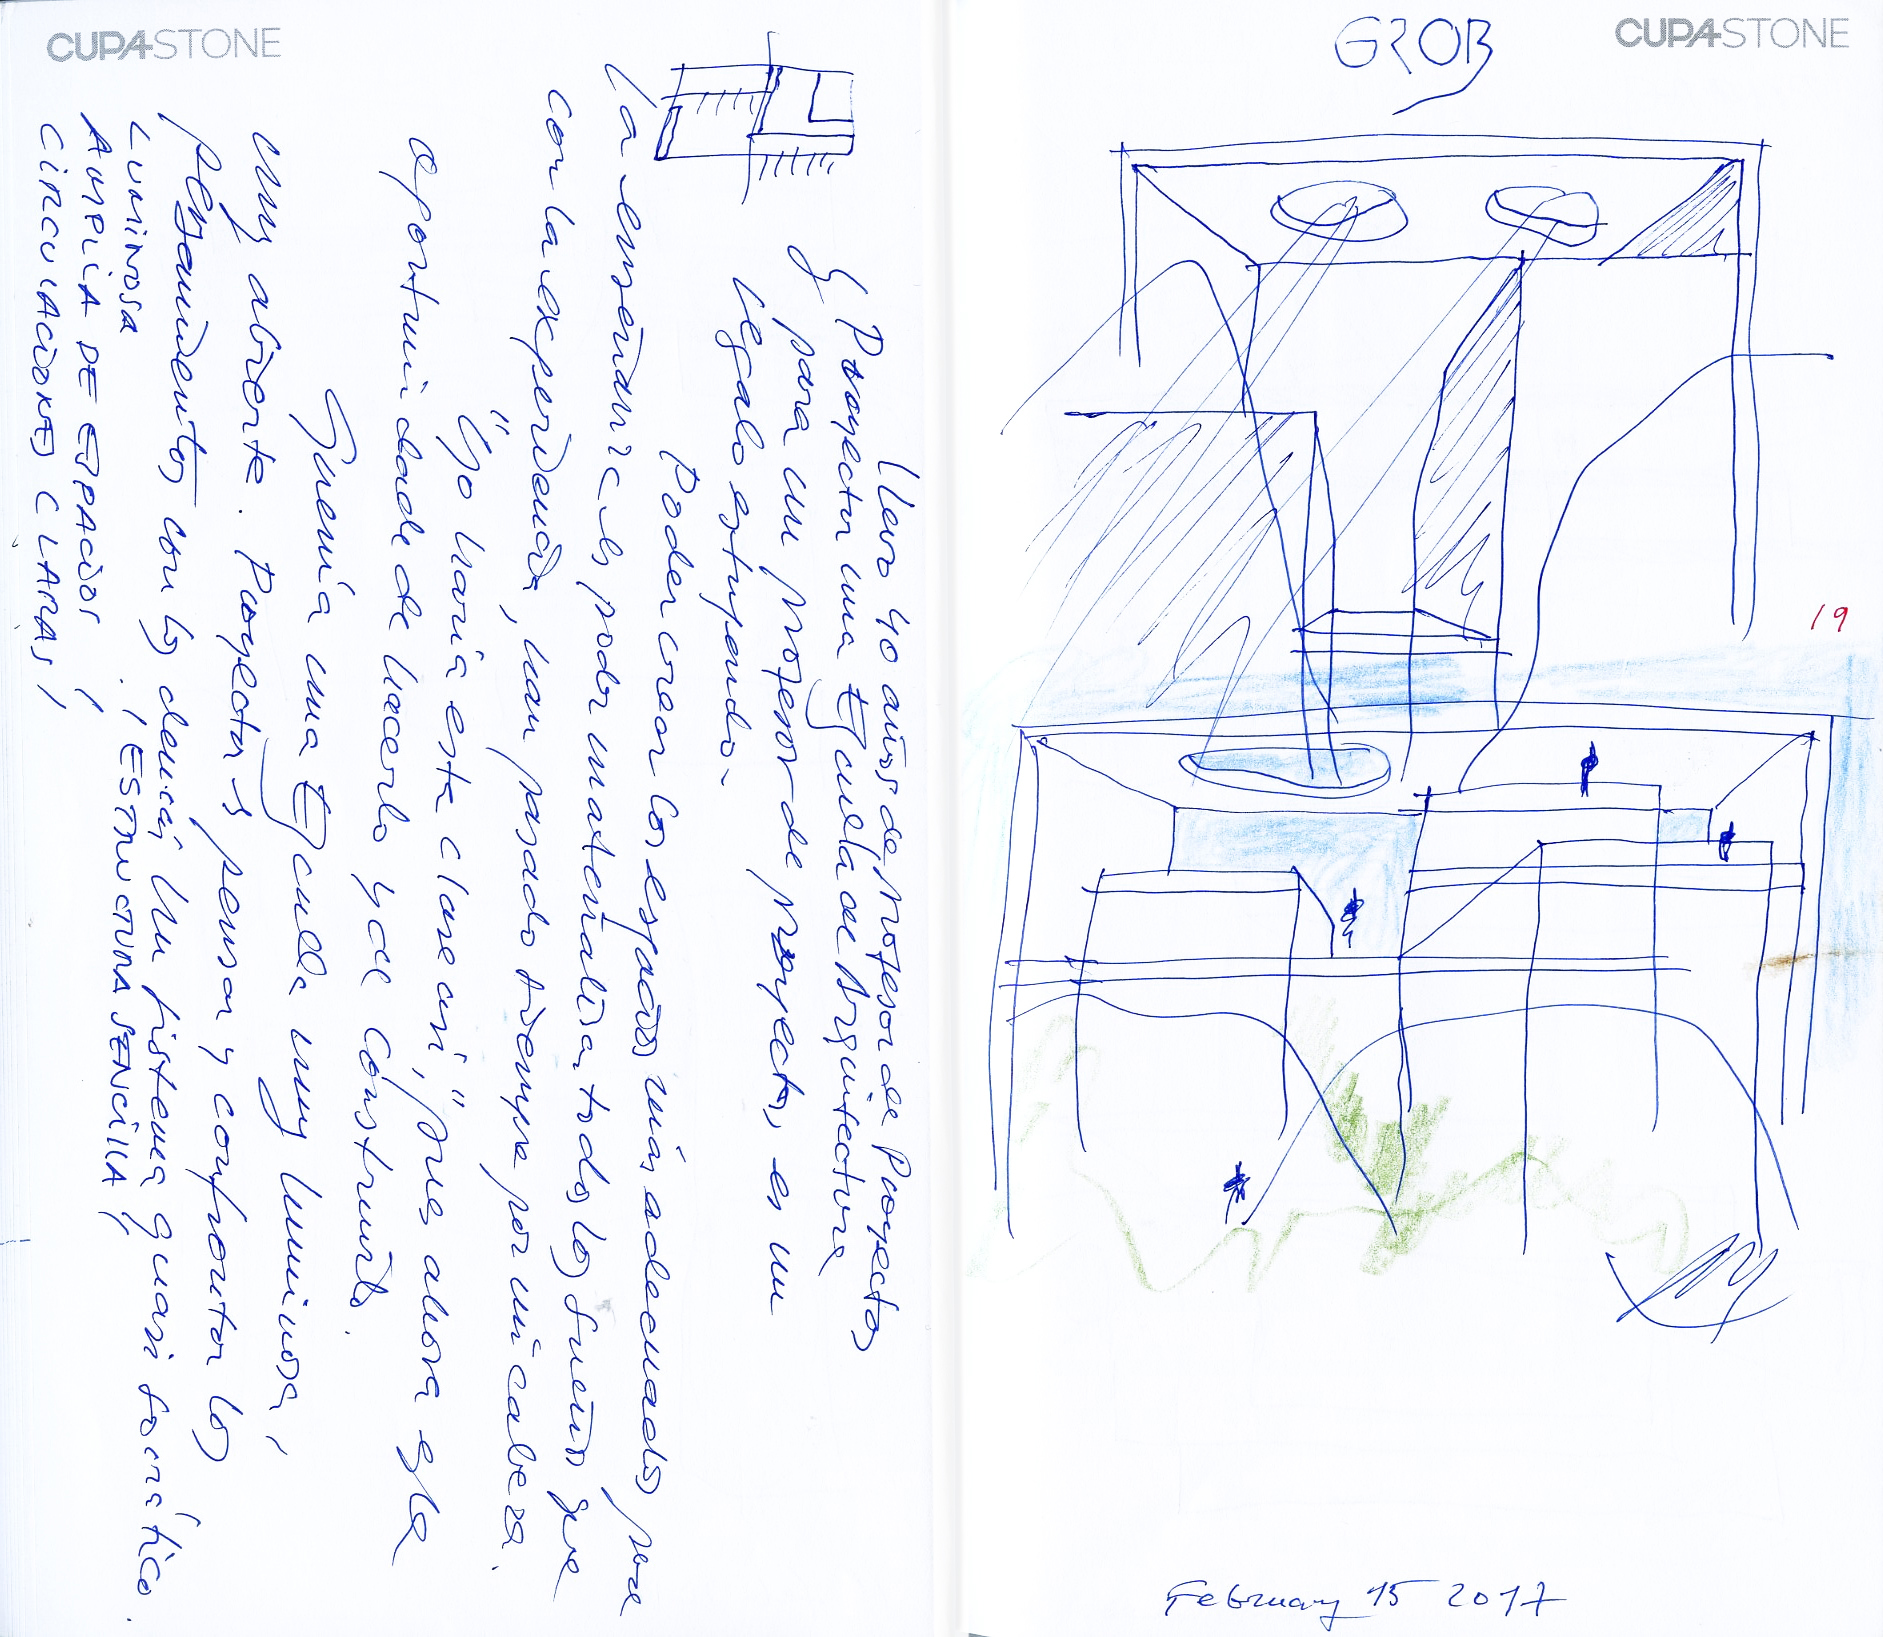 CUPASTONE
Llevo 40 años de Profesor de Proyectos
y Proyectar una Escuela de Arquitectura
para un profesor de proyectos, es un
regalo estupendo.
Poder crear los espacios más adecuados para
la enseñanza es poder materializar todos los sueños que
con la experiencia, han pasado siempre por mi cabeza.
"Yo haría esta clase así", pues ahora es la
oportunidade de hacerlo y de construirlo.
Quería una Escuela muy luminosa,
muy abierta. Proyectar es pensar y confrontar los
pensamientos con los demás. Un sistema quasi socrático.
LUMINOSA ¡ESTRUCTURA SENCILLA!
AMPLIA DE ESPACIOS!
CIRCULACIONES CLARAS!
GROB
CUPASTONE
19
February 15 2017